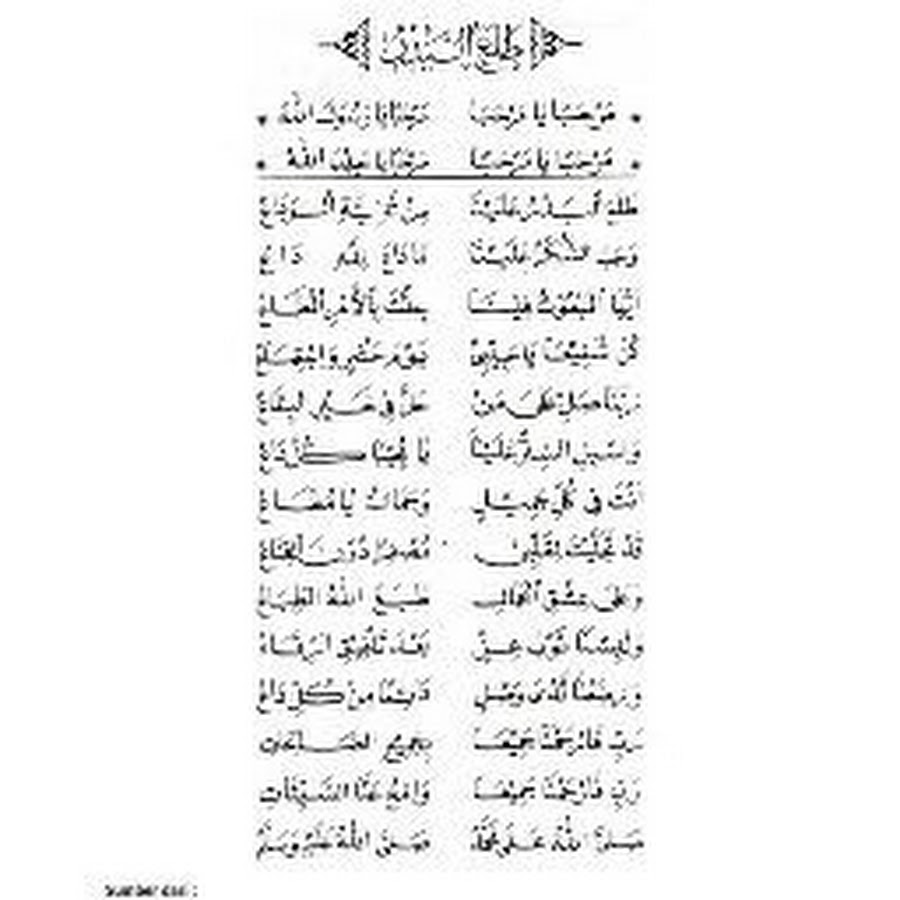 طلع البدر
مَرْحَبًا يَا مَرْحَبًا مَرْحَبًا يَا رَسُولَ اللهْ
مَرْحَبًا يَا مَرْحَبًا مَرْحَبًا يَا حَبِيبَ اللهْ
طَلَعَ الْبَدْرُ عَلَيْنَا مِنْ ثَنِيَّةِ الْوَدَاعْ
وَجَبَ الشُّكْرُ عَلَيْنَا مَا دَعَا لِلّٰهِ دَاعْ
أَيُّهَا الْمَبْعُوثُ فِينَا جِئْتَ بِالْأَمْرِ الْمُطَاعْ
كُنْ شَفِيعًا يَا حَبِيبِي يَوْمَ حَشْرٍ وَاجْتِمَاعْ
رَبَّنَا صَلِّ عَلَى مَنْ حَلَّ فِي خَيْرِ الْبِقَاعْ
وَاسْبِلِ السِّتْرَ عَلَيْنَا كُلِّ دَاعْ
أَنْتَ فِي كُلِّ جَمِيلٍ يَا مُطَاعْ
قَدْ تَجَلَّيْتَ لِقَلْبِي دُونَ الْقِنَاعْ
وَعَلَى عِشْقِ طَبَعَ اللهُ الطِّبَاعْ
وَلَبِسْنَا ثَوْبَ عِزٍّ بَعْدَ تَلْفِيقِ الرِّقَاعْ
وَرَضَعْنَا ثَدْيَ وَصْلٍ مِنْ كُلِّ دَاعْ
رَبِّ فَارْحَمْنَا جَمِيعًا بِجَمِيعِ الصَّالِحَاتِ
رَبِّ فَارْحَمْنَا جَمِيعًا وَامْحُ عَنَّا السَّيِّئَاتِ
صَلَّى اللهُ عَلَى مُحَمَّدْ صَلَّى اللهُ عَلَيْهِ وَسَلَّمْ
Sumber dari :